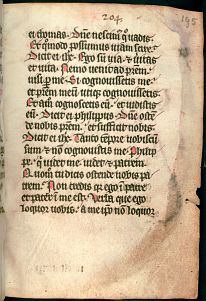 204
195
ei thomas. Dne nescim qͥ uadis.
Et qmodo possumus uiam scire.
Dicit ei ihc. Ego sum uia. & uitas
et uita. Nemo uenit ad prem.
nisi p me. Si cognouissetis me
et prem meū utiqȝ cognouissetis.
Et am cognoscetis eū. et uidistis
eū. Dicit ei philippus. Dne oste
de nobis prem. et sufficit nobis.
Dicit ei ihc. Tanto tempore uobiscū
sum. & nō cognouistis me. Philip
pe. q uidet me. uidet & patrem.
Quom tu dicis ostende nobis pa
trem. Non credis qȝ ego ī patre
et pater ī me est. Verba que ego
loquor uobis. a me ipo nō loquor.